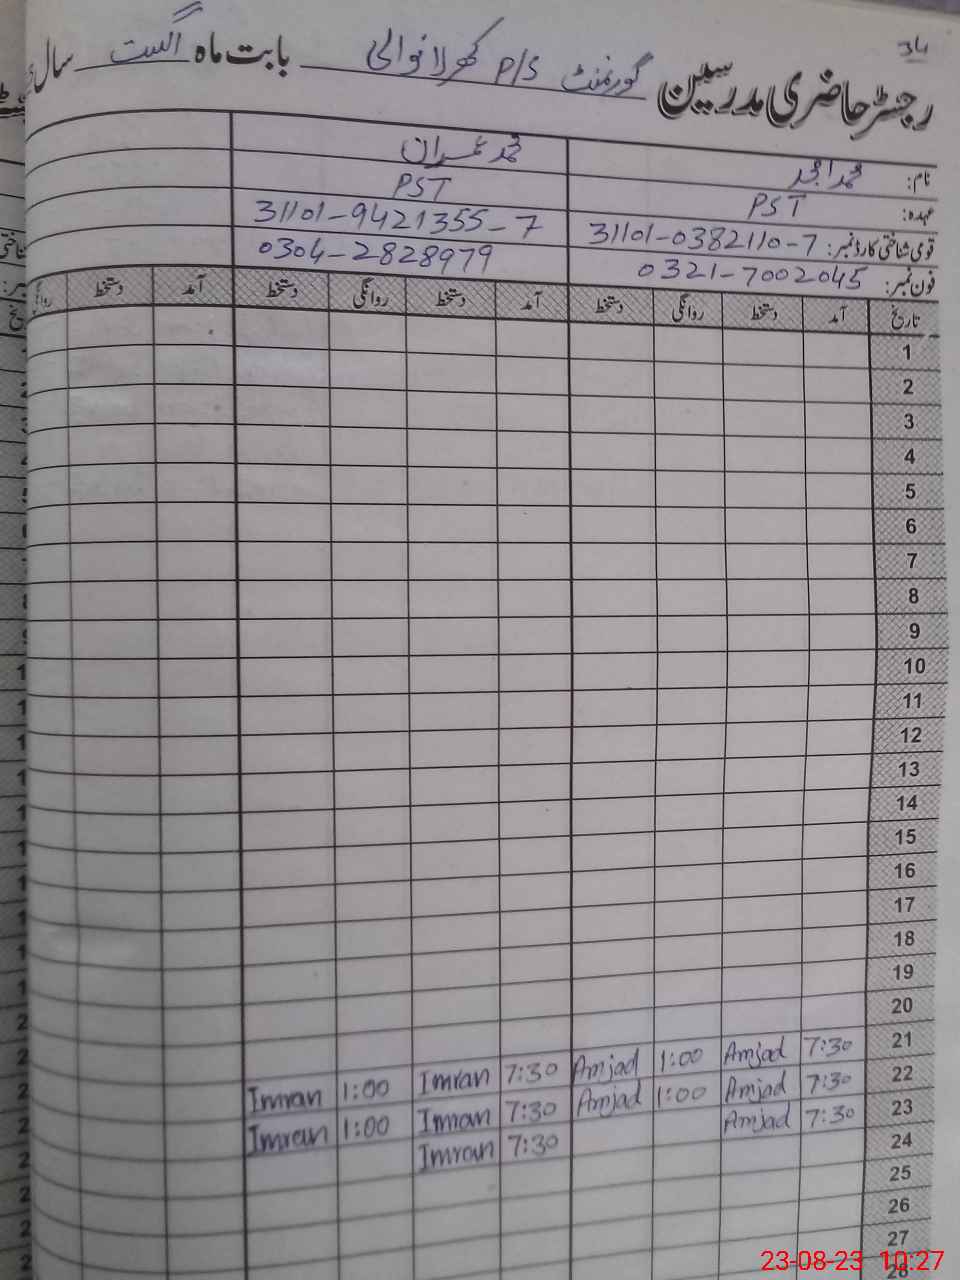 34
رجسٹر حاضری مدرسین گورنمنٹ P/S کھرلانوالی بابت ماہ اگست سال
نام: محمد امجد محمد عمران
عہدہ: PST PST
قومی شناختی کارڈ نمبر: 31101-0382110-7 31101-9421355-7
فون نمبر: 0321-7002045 0304-2828979
تاریخ آمد دستخط روانگی دستخط آمد دستخط روانگی دستخط آمد دستخط روانگی
1
2
3
4
5
6
7
8
9
10
11
12
13
14
15
16
17
18
19
20
21 7:30 Amjad 1:00 Amjad 7:30 Imran 1:00 Imran
22 7:30 Amjad 1:00 Amjad 7:30 Imran 1:00 Imran
23 7:30 Amjad 7:30 Imran
24
25
26
27
28
23-08-23 10:27